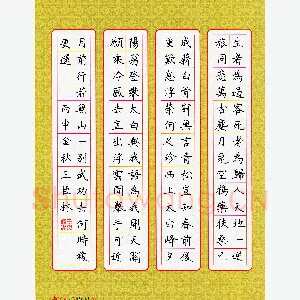 生者為過客死者為歸人天地一逆
旅同悲萬古塵月兔空搗藥扶桑已
成薪白骨寂無言青松豈知春前後
更歎息浮榮何足珍西上太白峰夕
陽窮登攀太白與我語為我開天關
願乘泠風去直出浮雲間舉手可近
月前行若無山一別武功去何時復
更還 丙申金秋三臣